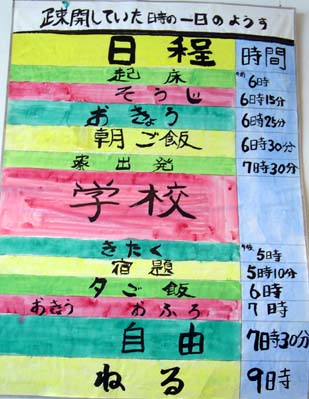 疎開していた時の一日のようす
日程 時間
起床 午前6時
そうじ 6時15分
おきょう 6時25分
朝ご飯 6時30分
寮出発 7時30分
学校
きたく 午後5時
宿題 5時10分
夕ご飯 6時
おきょう おふろ 7時
自由 7時30分
ねる 9時